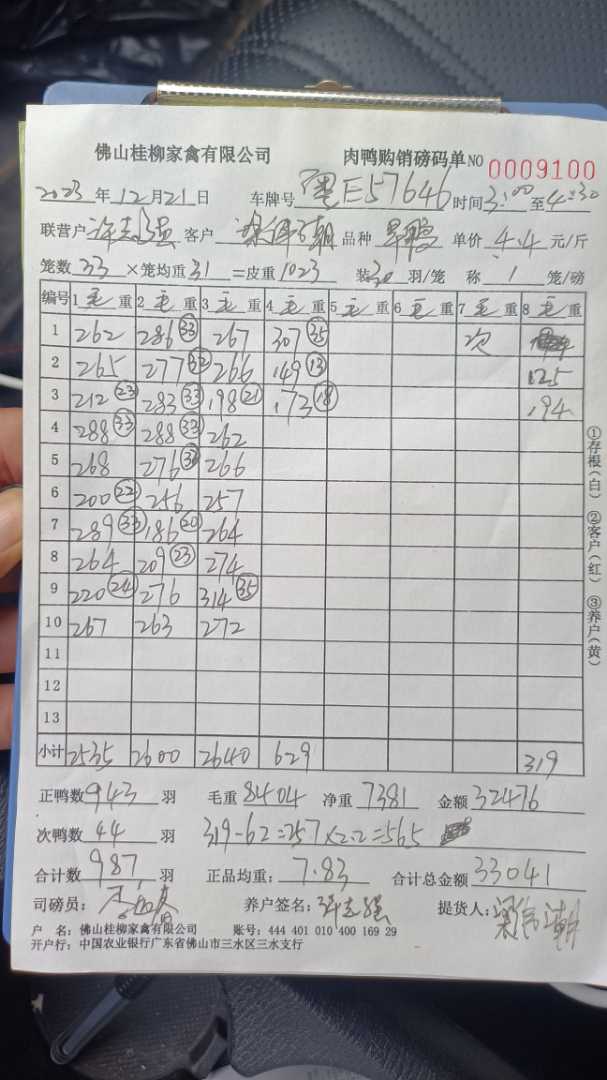 佛山桂柳家禽有限公司 肉鸭购销磅码单NO 0009100
2023年12月21日 车牌号 粤E57646 时间3:00至4:30
联营户 许志强 客户 梁伟潮 品种 旱鸭 单价 4.4 元/斤
笼数 33 ×笼均重 31 =皮重 1023 装 30 羽/笼 称 1 笼/磅
编号 1毛重 2毛重 3毛重 4毛重 5毛重 6毛重 7毛重 8毛重
1 262 286(33) 267 307(35) 次
2 265 277(32) 266 149(13) 125
3 212(23) 283(33) 198(21) 173(18) 194
4 288(33) 288(33) 262
5 268 276 266
6 200(22) 256 257
7 289(33) 186(20) 264
8 264 209(23) 274
9 220(24) 276 314(35)
10 267 263 272
11
12
13
小计 2535 2600 2640 629 319
正鸭数 943 羽 毛重 8404 净重 7381 金额 32476
次鸭数 44 羽 319-62=257×2.2=565
合计数 987 羽 正品均重: 7.83 合计总金额 33041
司磅员: 养户签名: 许志强 提货人: 梁伟潮
户 名: 佛山桂柳家禽有限公司 账号: 444 401 010 400 169 29
开户行: 中国农业银行广东省佛山市三水区三水支行
①存根(白) ②客户(红) ③养户(黄)